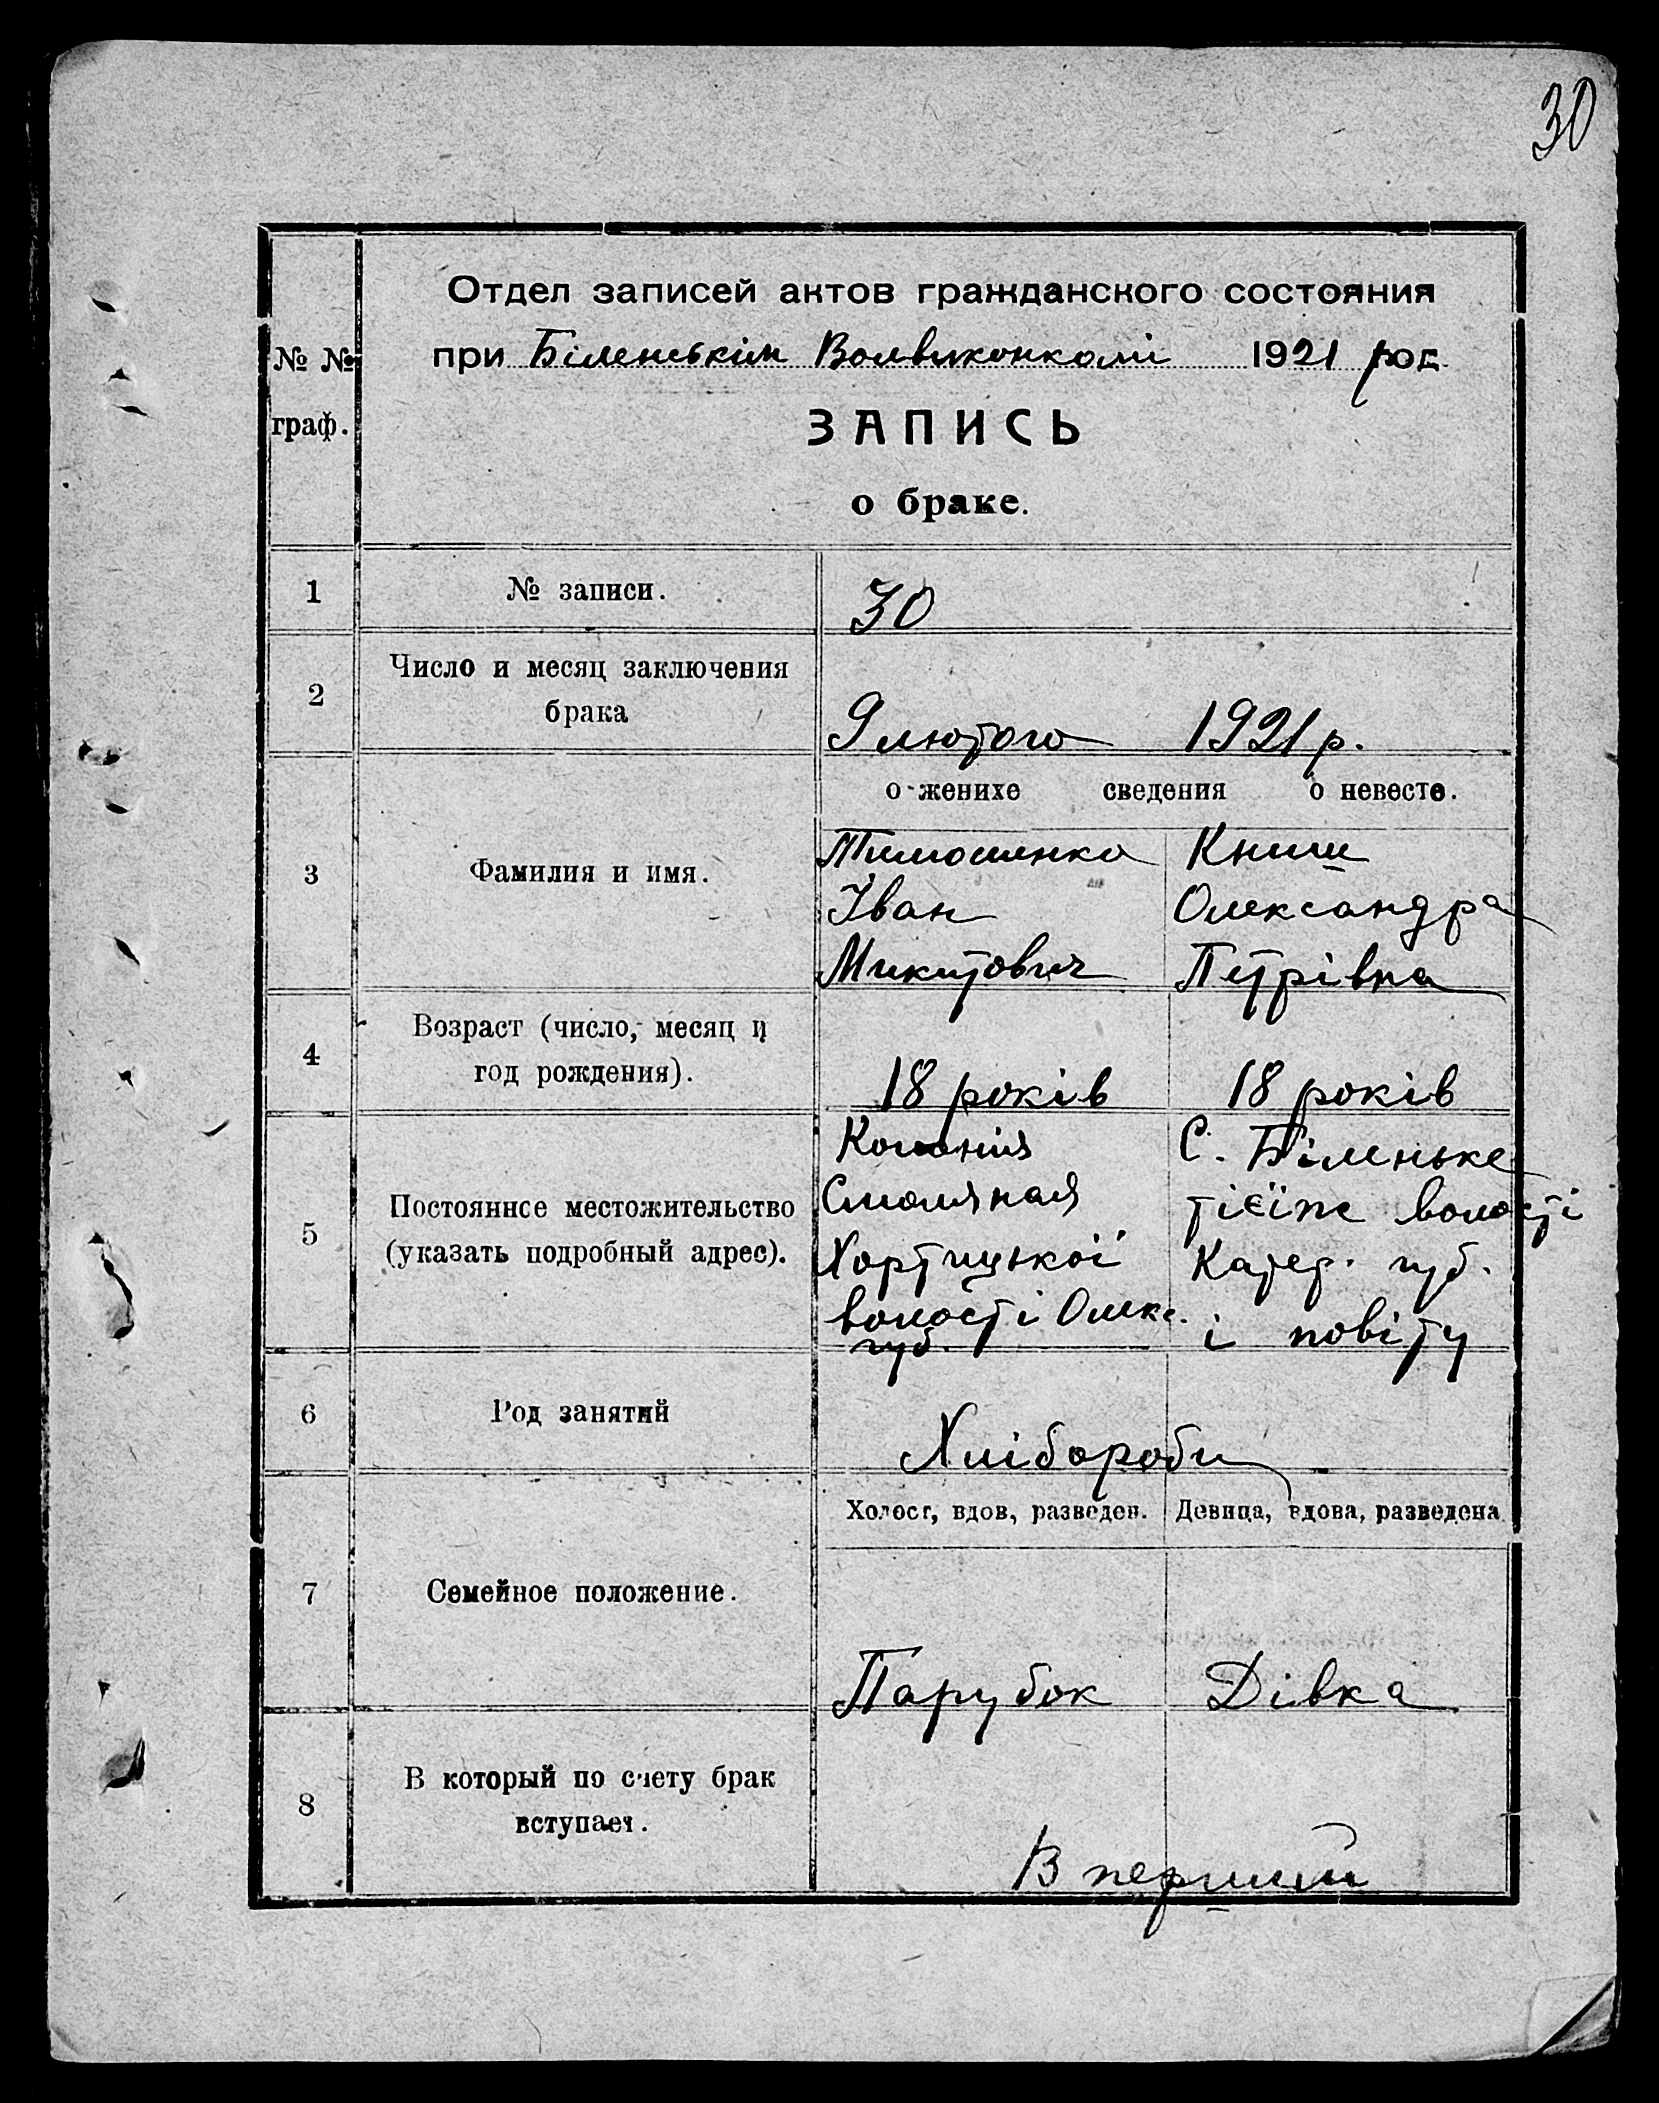 30
Отдел записей актов гражданского состояния
при Біленськім Волвиконкомі 1921 год
№ №
граф.
ЗАПИСЬ
о браке.
1 № записи. 30
2 Число и месяц заключения
брака
9 лютого 1921 р.
о женихе сведения о невесте.
3 Фамилия и имя.
Тимошенко Книш
Іван Олександра
Микитович Петрівна
4 Возраст (число, месяц и
год рождения).
18 років 18 років
5 Постоянное местожительство
(указать подробный адрес).
Колонія С. Біленьке
Смоляная тієїже волості
Хортицької Катер. губ.
волості Олекс. і повіту
губ.
6 Род занятий
Хлібороби
Холост, вдов, разведен. Девица, вдова, разведена
7 Семейное положение.
Парубок Дівка
8 В который по счету брак
вступает.
В перший